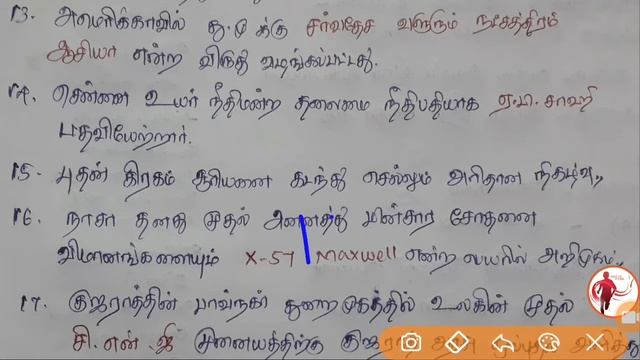 13. அமெரிக்காவில் து.மு க்கு சர்வதேச வளரும் நட்சத்திரம்
ஆசியா என்ற விருது வழங்கப்பட்டது.
14. சென்னை உயர் நீதிமன்ற தலைமை நீதிபதியாக ஏ.பி. சாஹி
பதவியேற்றார்.
15. புதன் கிரகம் சூரியனை கடந்து செல்லும் அரிதான நிகழ்வு,
16. நாசா தனது முதல் அனைத்து மின்சார சோதனை
விமானங்களையும் X-57 Maxwell என்ற பெயரில் அறிமுகம்.
17. குஜராத்தின் பாவ்நகர் துறைமுகத்தில் உலகின் முதல்
சி.என்.ஜி முனையத்திற்கு குஜரா